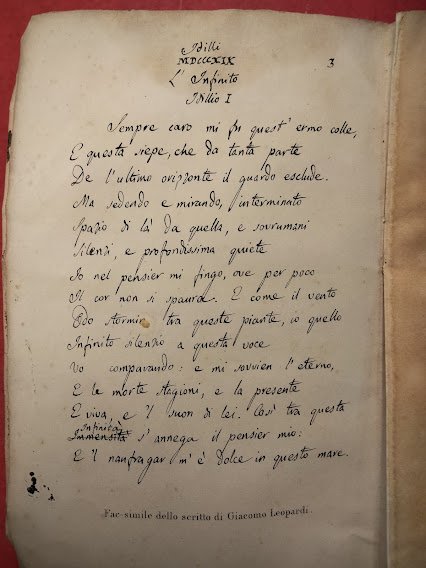 Idilli
MDCCCXIX
3
L' Infinito
Idillio I
Sempre caro mi fu quest' ermo colle,
E questa siepe, che da tanta parte
De l'ultimo orizzonte il guardo esclude.
Ma sedendo e mirando, interminato
Spazio di là da quella, e sovrumani
Silenzi, e profondissima quiete
Io nel pensier mi fingo, ove per poco
Il cor non si spaura. E come il vento
Odo stormir tra queste piante, io quello
Infinito silenzio a questa voce
Vo comparando: e mi sovvien l'eterno,
E le morte stagioni, e la presente
E viva, e 'l suon di lei. Così tra questa
Infinità
Immensità s'annega il pensier mio:
E 'l naufragar m' è dolce in questo mare.
Fac-simile dello scritto di Giacomo Leopardi.